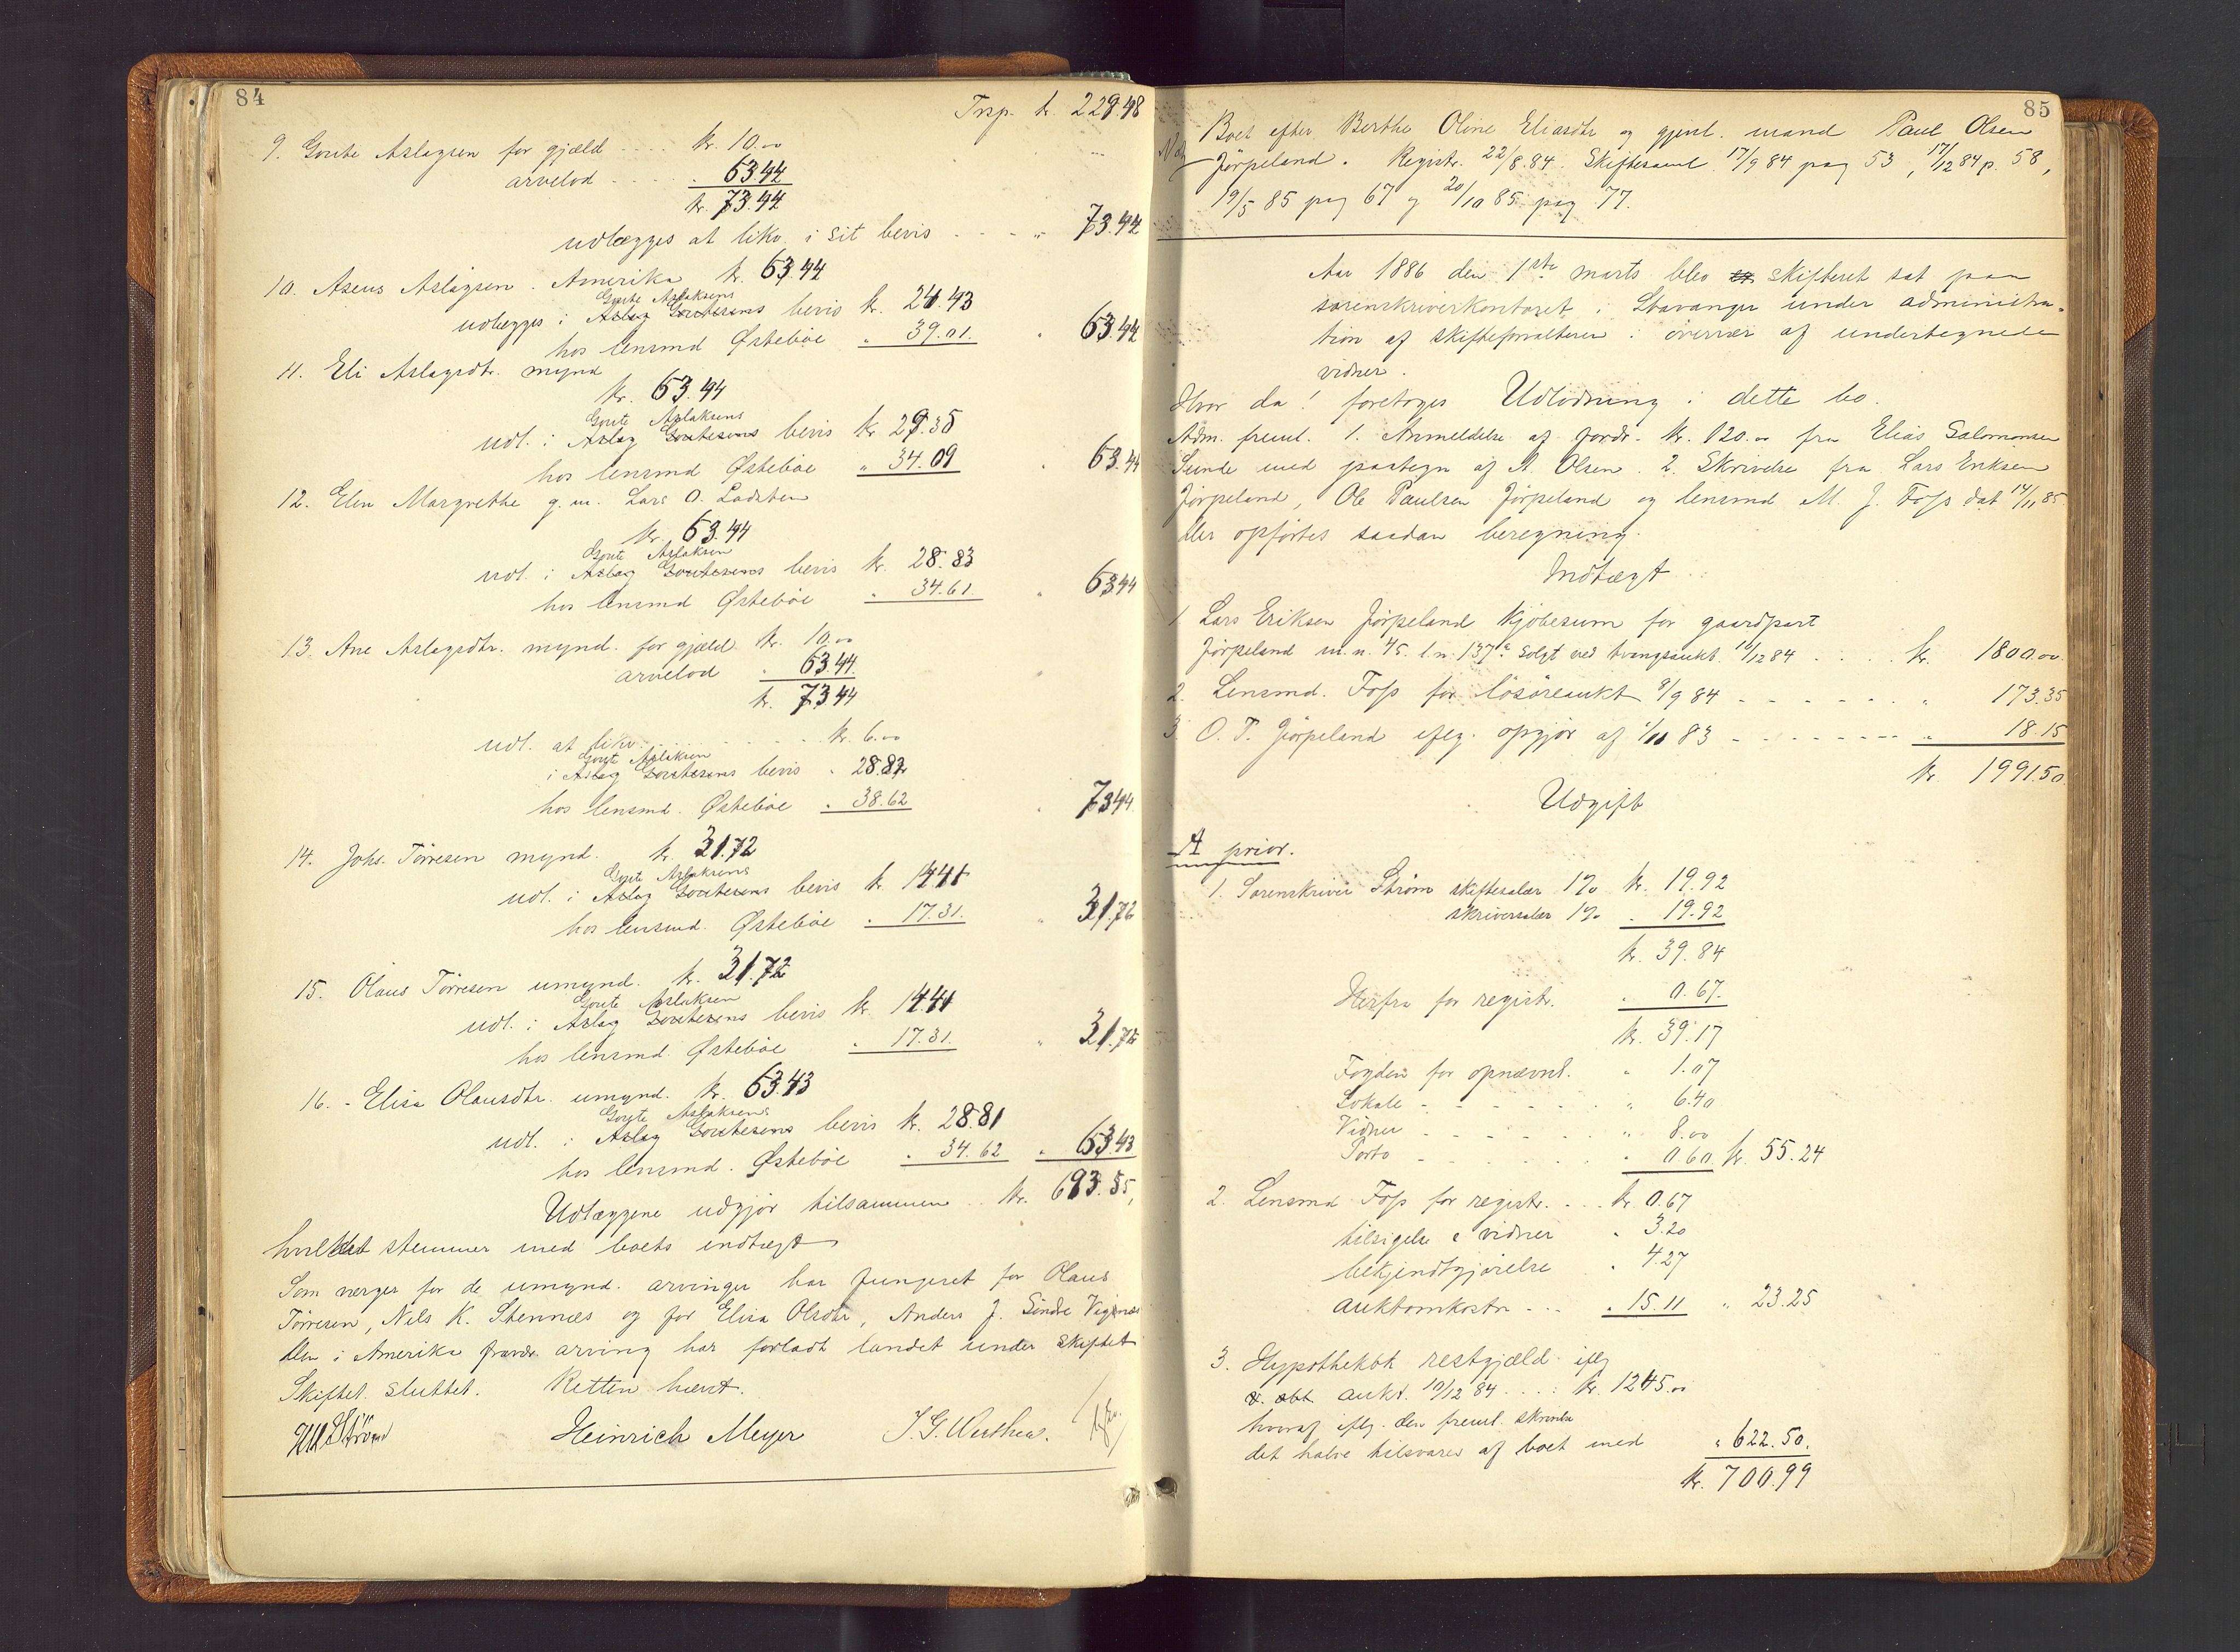 84
Trsp. kr. 229.48
9. Goute Aslagsen for gjæld .... kr. 10.00
arvelod ..... " 63.44
kr. 73.44
udlægges at likv. i sit bevis ... " 73.44
10. Asens Aslagsen. Amerika kr. 63.44
Goute Aslaksens
udlægges i Aslag Goutesens bevis kr. 24.43
hos lensmd Østebøe " 39.01. " 63.44
11. Eli Aslagsdtr. mynd
kr. 63.44
Goute Aslaksens
udl. i Aslag Goutesens bevis kr 29.35
hos lensmd Østebøe " 34.09 " 63.44
12. Elen Margrethe g. m. Lars O. Ladsten
kr. 63.44
Goute Aslaksen
udl. i Aslag Goutesens bevis kr. 28.83
hos lensmd Østebøe " 34.61. " 63.44
13. Ane Aslagsdtr. mynd. for gjæld kr. 10.00
arvelod " 63.44.
kr. 73.44
udl. at likv. ........ kr. 6.00
Goute Aslaksen
i Aslag Goutesens bevis " 28.82
hos lensmd. Østebøe " 38.62 " 73.44.
14. Johs. Tørresen mynd. kr. 31.72
Goute Aslaksens
udl. i Aslag Goutesens bevis kr 14.41
hos lensmd. Østebøe " 17.31. " 31.72
15. Olaus Tørresen umynd. kr. 31.72
Goute Aslaksen
udl. i Aslag Goutesens bevis kr. 14.41
hos lensmd. Østebøe " 17.31. " 31.72
16. - Elisa Olausdtr. umynd. kr. 63.43
Goute Aslaksens
udl. i Aslag Goutesens bevis kr. 28.81
hos lensmd. Østebøe " 34.62 " 63.43
Udlæggene udgjør tilsammen .. kr. 693.55,
hvilket stemmer med boets indtægt
Som verger for de umynd. arvinger har fungeret for Olaus
Tørresen, Nils K. Stennæs og for Elisa Olsdtr, Anders J. Søndre Vignæs
Den i Amerika arving har forladt landet under skiftet
Skiftet sluttet. Retten hævet.
Strøm Heinrich Meyer
85
Boet efter Berthe Oline Eliasdtr og gjenl. mand Paul Olsen
Jørpeland. Registr. 22/8.84. Skiftesaml. 17/9 84 pag 53, 17/12 84 p. 58,
19/5 85 pag 67 og 20/10 85 pag 77.
Aar 1886 den 1ste marts blev skifteret sat paa
sorenskriverkontoret i Stavanger under administra-
tion af skifteforvalteren i overvær af undertegnede
vidner.
Hvor da! foretoges Udlodning i dette bo.
Adm. freml. 1. Anmeldelse af fordr. kr. 120.00 fra Elias Salomonsen
Sunde med paategn af A. Olsen. 2. Skrivelse fra Lars Eriksen
Jørpeland, Ole Paulsen Jørpeland og lensmd M. J. Foss dat 14/11 85.
Der opførtes saadan beregning.
Indtægt
1 Lars Eriksen Jørpeland kjøbesum for gaardpart
Jørpeland m. n. 45. l. n. 137c solgt ved tvangsaukt. 10/12 84 .... kr. 1800.00.
2. Lensmd. Foss for løsøreaukt 8/9 84 ....... " 173.35
3. O. P. Jørpeland iflg. opgjør af 1/11 83 ........ " 18.15
kr. 1991.50.
Udgift
A prior.
1. Sorenskriver Strøm skiftesalær 1% kr. 19.92
skriversalær 1% " 19.92
kr. 39.84
Herfra for registr. " 0.67.
kr. 39.17
Fogden for opnævnl. " 1.07
Lokale ...... " 6.40
Vidner ...... " 8.00
Porto ...... " 0.60 kr. 55.24
2. Lensmd Foss for registr. ... kr 0.67
tilsigelse e vidner " 3.20
bekjendtgjørelse " 4.27
auktomkostn ... " 15.11 " 23.25
3. Hypothekbk restgjæld iflg
aukt. 10/12 84 .... kr. 1245.00
hvoraf iflg. den freml. skrivelse
det halve tilsvares af boet med " 622.50.
kr. 700.99